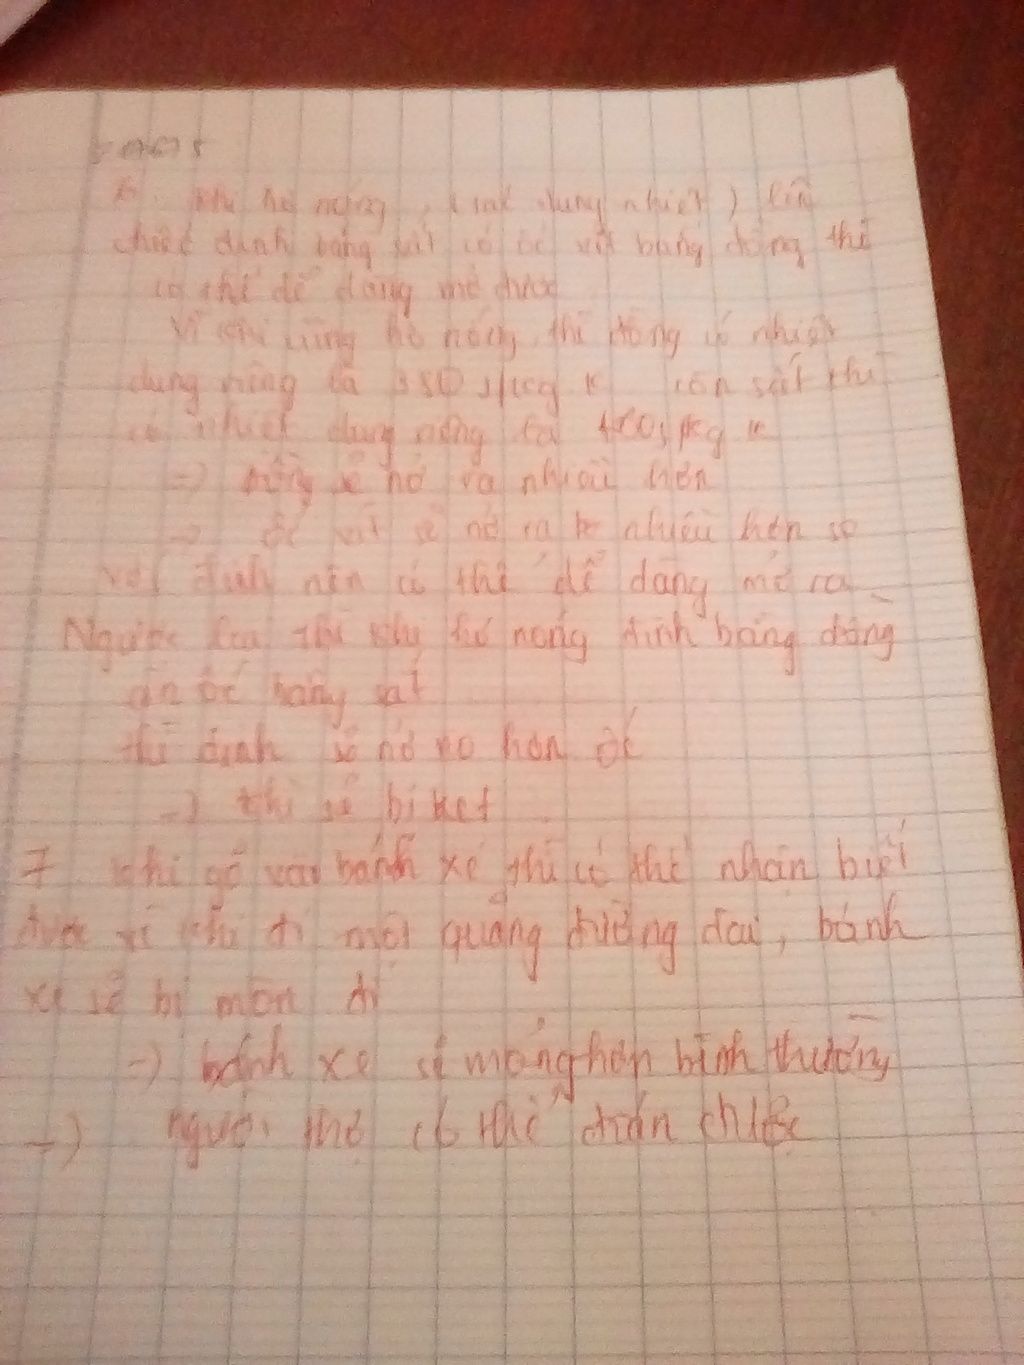 6. Khi hơ nóng, ( nhiệt ) lên
chiếc đinh bằng sắt có ốc vít bằng đồng thì
có thể dễ dàng mở được
Vì khi cùng hơ nóng, thì đồng có nhiệt
dung riêng là 380 J/kg K còn sắt thì
có nhiệt dung riêng là 460 J/kg K
=) đồng sẽ nở ra nhiều hơn
=) ốc vít sẽ nở ra nhiều hơn so
với đinh nên có thể dễ dàng mở ra
Ngược lại thì khi hơ nóng đinh bằng đồng
ốc bằng sắt
thì đinh sẽ nở to hơn ốc
=) thì sẽ bị kẹt
7 khi gõ vào bánh xe thì có thể nhận biết
được vì khi đi một quãng đường dài, bánh
xe sẽ bị mòn đi
=) bánh xe sẽ mỏng hơn bình thường
=) người thợ có thể đoán